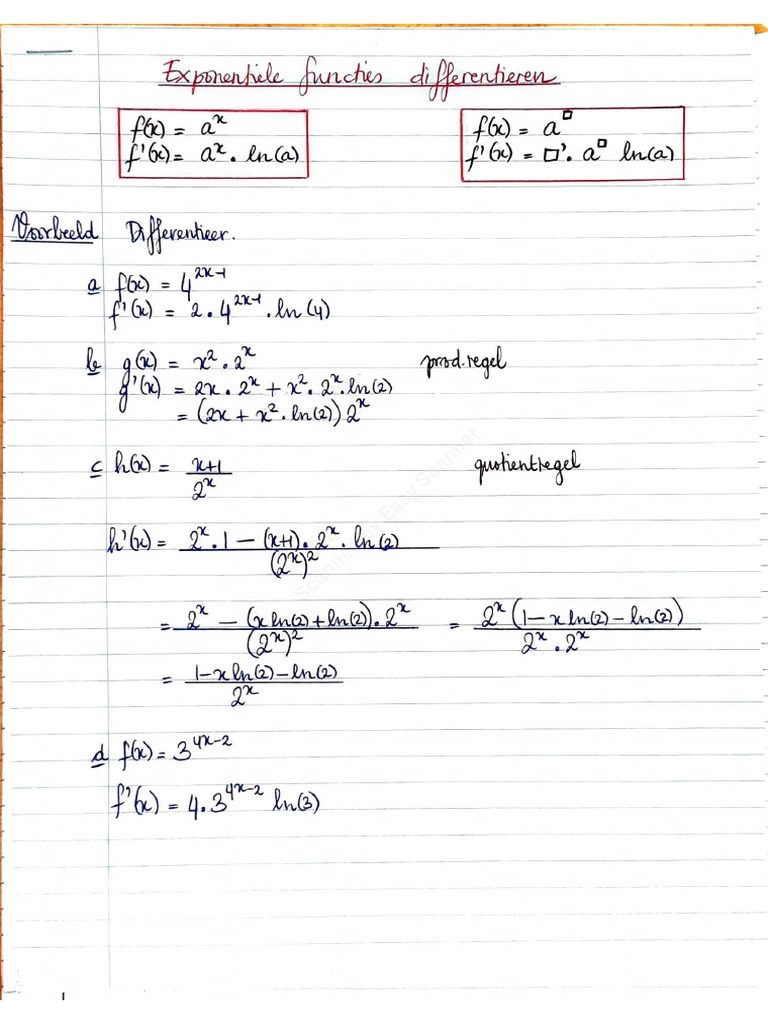 Exponentiele functies differentieren
f(x) = a^x
f'(x) = a^x · ln(a)
f(x) = a^□
f'(x) = □' · a^□ ln(a)
Voorbeeld Differentieer.
a f(x) = 4^(2x-1)
f'(x) = 2 · 4^(2x-1) · ln(4)
b g(x) = x² · 2^x prod.regel
g'(x) = 2x · 2^x + x² · 2^x · ln(2)
= (2x + x² · ln(2)) 2^x
c h(x) = (x+1)/(2^x) quotientregel
h'(x) = (2^x · 1 - (x+1) · 2^x · ln(2))/((2^x)²)
= (2^x - (x ln(2) + ln(2)) · 2^x)/((2^x)²) = (2^x (1 - x ln(2) - ln(2)))/(2^x · 2^x)
= (1 - x ln(2) - ln(2))/(2^x)
d f(x) = 3^(4x-2)
f'(x) = 4 · 3^(4x-2) ln(3)
Scanned by Easy Scanner